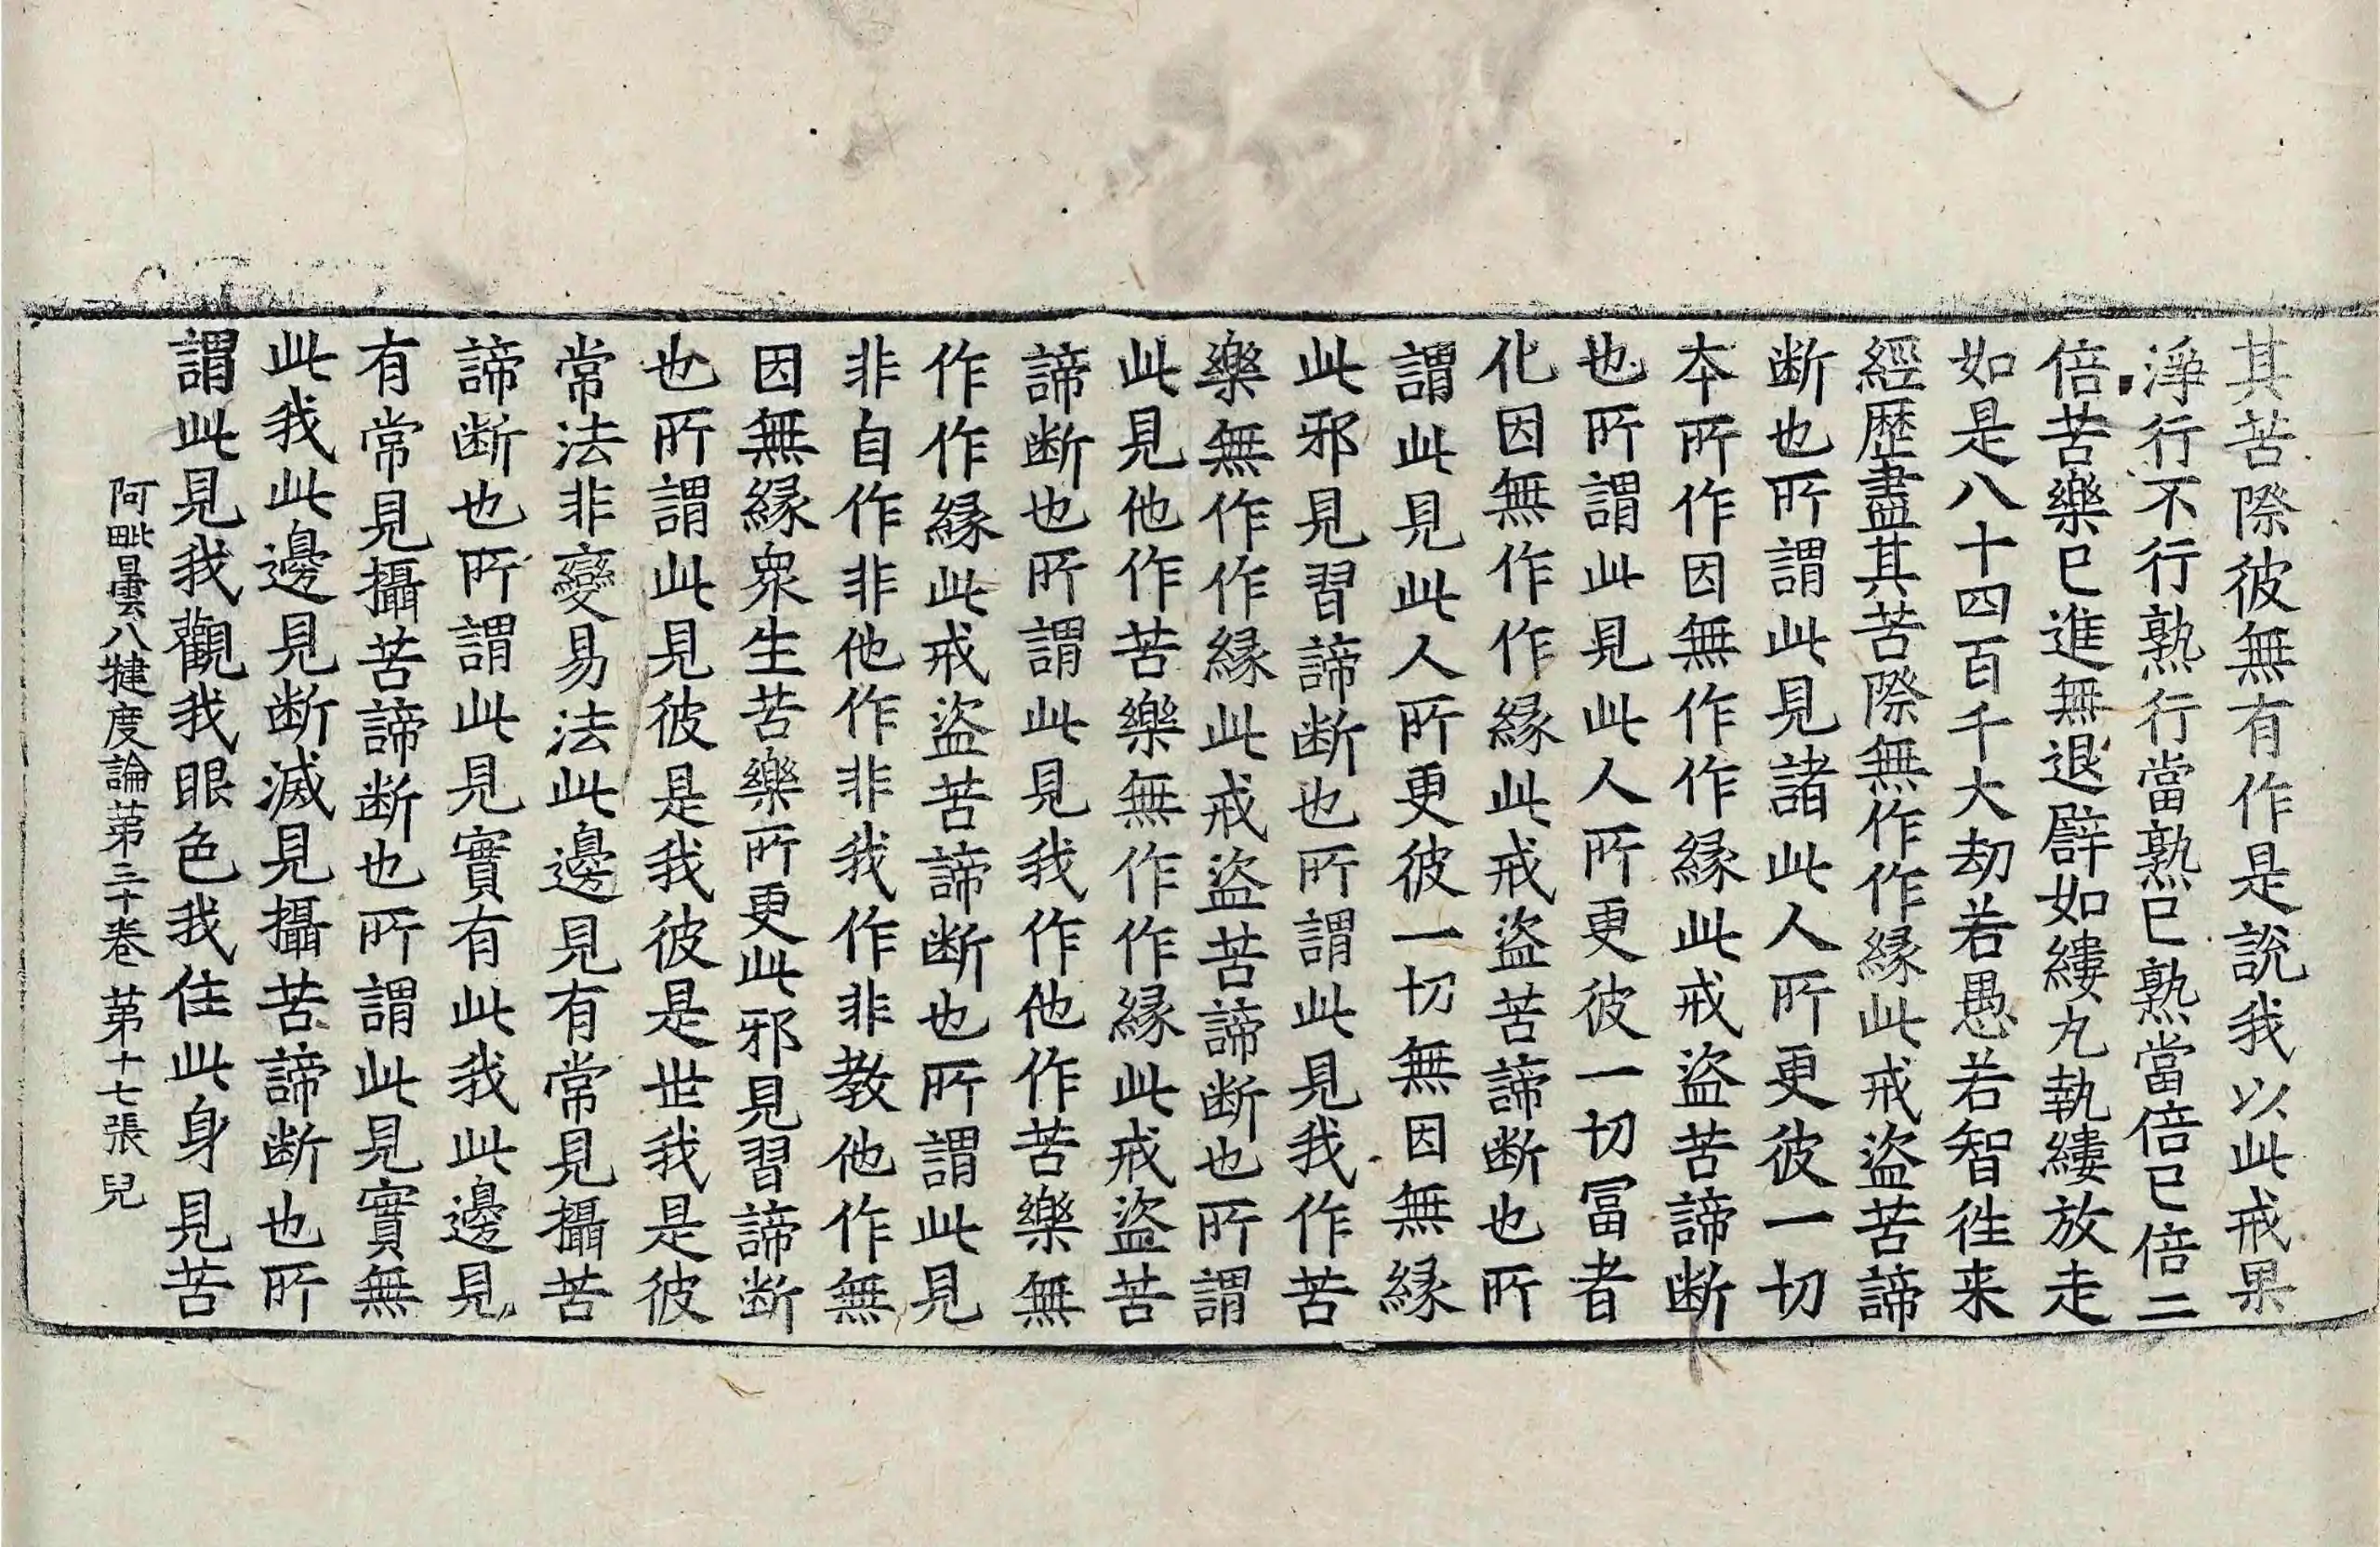 其苦際彼無有作是說我以此戒果
淨行不行熟行當熟已熟當倍已倍二
倍苦樂已進無退譬如縷丸執縷放走
如是八十四百千大劫若愚若智徃来
經歷盡其苦際無作作縁此戒盜苦諦
断也所謂此見諸此人所更彼一切
本所作因無作作縁此戒盜苦諦断
也所謂此見此人所更彼一切冨者
化因無作作縁此戒盜苦諦断也所
謂此見此人所更彼一切無因無縁
此邪見習諦断也所謂此見我作苦
樂無作作縁此戒盜苦諦断也所謂
此見他作苦樂無作作縁此戒盜苦
諦断也所謂此見我作他作苦樂無
作作縁此戒盜苦諦断也所謂此見
非自作非他作非我作非教他作無
因無縁衆生苦樂所更此邪見習諦断
也所謂此見彼是我彼是世我是彼
常法非變易法此邊見有常見攝苦
諦断也所謂此見實有此我此邊見
有常見攝苦諦断也所謂此見實無
此我此邊見断滅見攝苦諦断也所
謂此見我觀我眼色我住此身見苦
阿毗曇八犍度論苐三十卷 苐十七張 兒